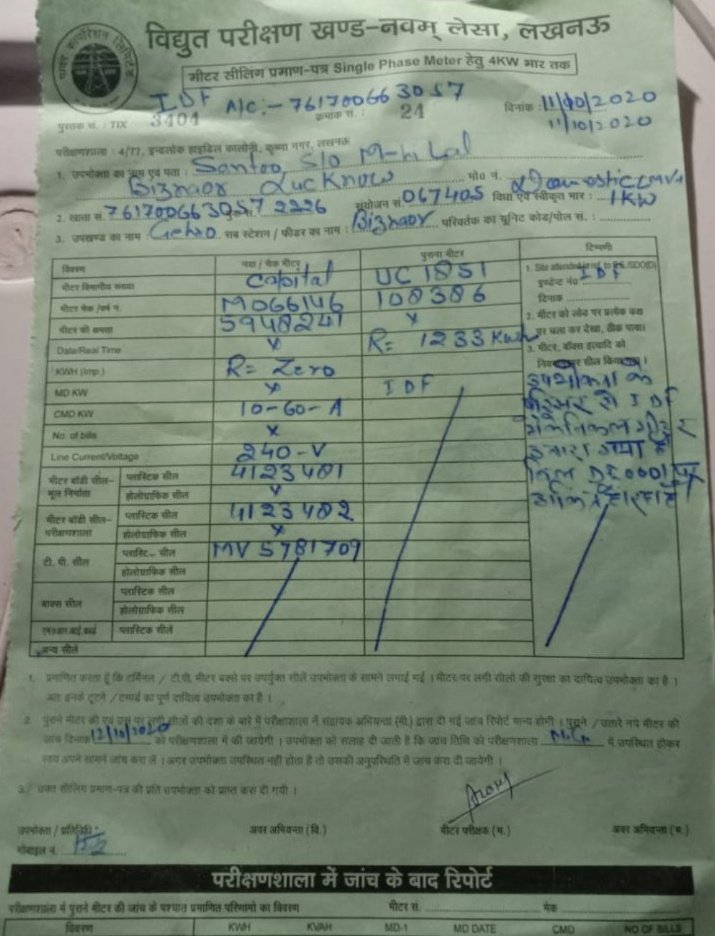 विद्युत परीक्षण खण्ड-नवम् लेसा, लखनऊ
मीटर सीलिंग प्रमाण-पत्र Single Phase Meter हेतु 4KW भार तक
IDF A/c:- 761700663057
पुस्तक सं. : TIX 3404 क्रमांक सं. : 24 दिनांक : 11/10/2020
11/10/2020
परीक्षणशाला : 4/77, इन्दलोक हाइडिल कालोनी, कृष्णा नगर, लखनऊ
1. उपभोक्ता का नाम एवं पता : Santoo S/o
Bijnaor Lucknow पो० नं.
2. खाता सं. 761700663057 2226 संयोजन सं. 067405 विधा एवं स्वीकृत भार : 1KW
3. उपखण्ड का नाम : सब स्टेशन / फीडर का नाम : Bijnaor परिवर्तक का यूनिट कोड/पोल सं. :
विवरण नया / चेक मीटर पुराना मीटर टिप्पणी
मीटर विभागीय संख्या Capital UC 1851
मीटर मेक / वर्ष नं. M066146 108386
मीटर की क्षमता 5948241 x
Date/Real Time x R= 1233 Kwh
KWH (Imp.) R= Zero
MD KW x IDF
CMD KW 10-60-A
No. of bills x
Line Current/Voltage 240-V
मीटर बॉडी सील- मूल निर्माता प्लास्टिक सील 4123481
होलोग्राफिक सील x
मीटर बॉडी सील- परीक्षणशाला प्लास्टिक सील 4123482
होलोग्राफिक सील x
टी. पी. सील प्लास्टिक सील MV 5781709
होलोग्राफिक सील
बाक्स सील प्लास्टिक सील
होलोग्राफिक सील
प्लास्टिक सीलें
अन्य सीलें
1. Site attended in ref. to
इण्डेन्ट नं० IDF
दिनांक
2. मीटर को लोड पर प्रत्येक फेस
पर चला कर देखा, ठीक पाया।
3. मीटर, बॉक्स इत्यादि को
नियमानुसार सील किया गया।
उपभोक्ता के
परिसर से IDF
1. प्रमाणित करता हूँ कि टर्मिनल / टी.पी. मीटर बक्से पर उपर्युक्त सीलें उपभोक्ता के सामने लगाई गई। मीटर पर लगी सीलों की सुरक्षा का दायित्व उपभोक्ता का है।
अतः इनके टूटने / टेम्पर्ड का पूर्ण दायित्व उपभोक्ता का है।
2. पुराने मीटर की एवं उस पर लगी सीलों की दशा के बारे में परीक्षाशाला में सहायक अभियन्ता (मी.) द्वारा दी गई जांच रिपोर्ट मान्य होगी। पुराने / उतारे गये मीटर की
जांच दिनांक 12/10/2020 को परीक्षणशाला में की जायेगी। उपभोक्ता को सलाह दी जाती है कि जांच तिथि को परीक्षणशाला में उपस्थित होकर
स्वयं अपने सामने जांच करा लें। अगर उपभोक्ता उपस्थित नहीं होता है तो उसकी अनुपस्थिति में जांच करा दी जायेगी।
3. उक्त सीलिंग प्रमाण-पत्र की प्रति उपभोक्ता को प्राप्त करा दी गयी।
उपभोक्ता / प्रतिनिधि अवर अभियन्ता (वि.) मीटर परीक्षक (म.) अवर अभियन्ता (म.)
मोबाइल नं.
परीक्षणशाला में जांच के बाद रिपोर्ट
परीक्षणशाला में पुराने मीटर की जांच के पश्चात प्रमाणित परिणामों का विवरण मीटर सं. मेक
विवरण KWH KVAH MD-1 MD DATE CMD NO OF BILLS